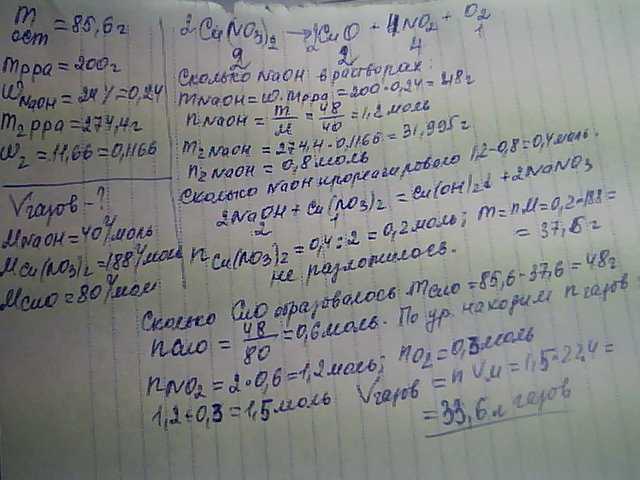 m ост = 85,6г
mрра = 200г
WNaOH = 24% = 0,24
m2рра = 274,4г
W2 = 11,66 = 0,1166
Vгазов - ?
MNaOH = 40 г/моль
MCu(NO3)2 = 188 г/моль
MCuO = 80 г/моль
2Cu(NO3)2 → 2CuO + 4NO2 + O2
2 2 4 1
Сколько NaOH в растворах:
mNaOH = W·mрра = 200·0,24 = 48г
nNaOH = m/M = 48/40 = 1,2 моль
m2NaOH = 274,4·0,1166 = 31,995г
n2NaOH = 0,8 моль
Сколько NaOH прореагировало 1,2-0,8=0,4моль.
2NaOH + Cu(NO3)2 = Cu(OH)2↓ + 2NaNO3
2 1
nCu(NO3)2 = 0,4:2 = 0,2моль; m = nM = 0,2·188 =
не разложилось. = 37,6 г
Сколько CuO образовалось mCuO = 85,6-37,6 = 48г
nCuO = 48/80 = 0,6моль. По ур. находим n газов:
nNO2 = 2·0,6 = 1,2моль; nO2 = 0,3моль
1,2+0,3 = 1,5моль Vгазов = n Vм = 1,5·22,4 =
= 33,6л газов